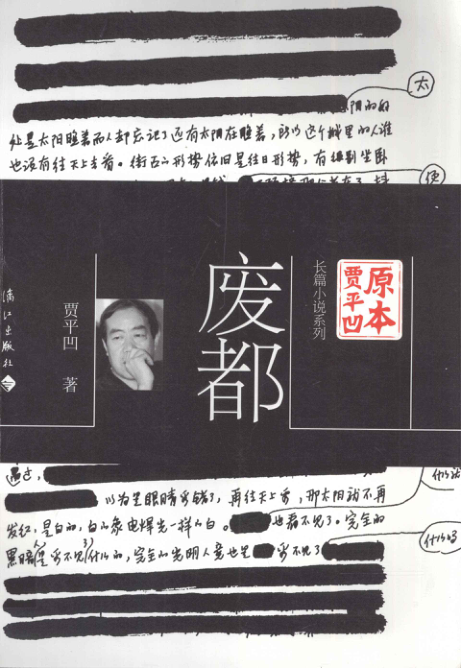 太
阳的好
处是太阳照着而人却忘记了还有太阳在照着，所以这个城里的人谁
也没有往天上去看。街面的形势依旧是往日形势，有级别坐卧
使
原本
贾平凹
长篇小说系列
废都
贾平凹 著
漓江出版社
通过，
以为是眼睛看错了，再往天上看，那太阳就不再
发红，是白的，白的象电焊光一样的白。也看不见了。完全的
黑暗人是看不见了什么的，完全的光明人竟也是看不见了
什么吗